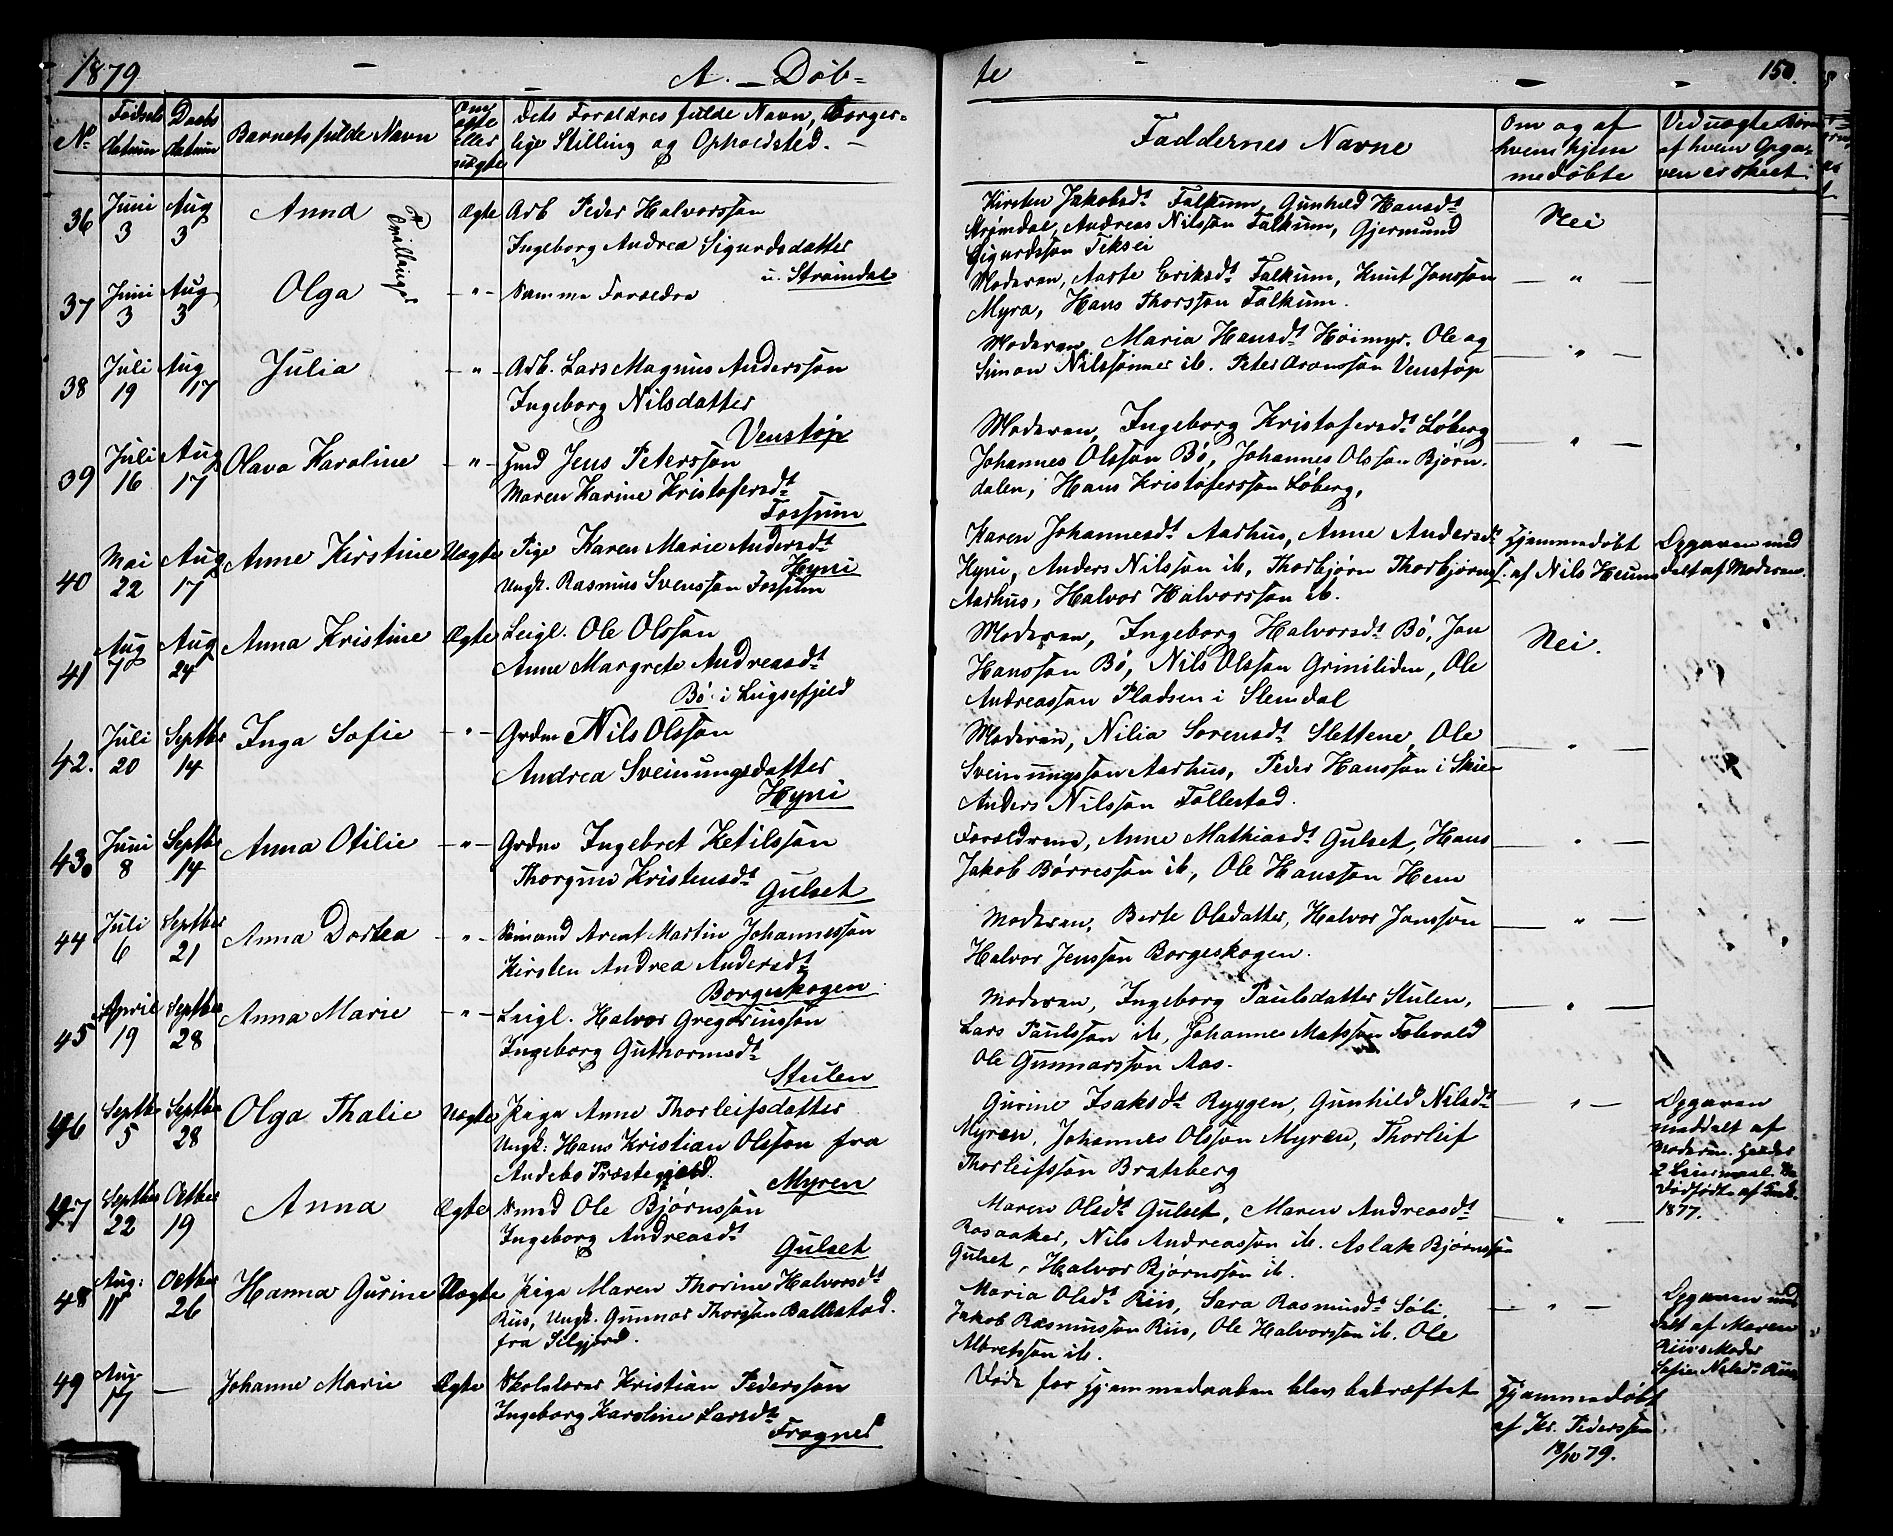 1879 A. Døb- te 150.
No Fødsels Datum Daabs Datum Barnets fulde Navn Om ægte eller uægte Dets Forældres fulde Navn, borger-
lige Stilling og Opholdsted. Faddernes Navne Om og af hvem hjem- medøbte Ved uægte Børn af hvem Opga- ven er skeet
36 Juni 3 Aug 3 Anna Tvillinger Ægte Arb Peder Halvorsson
Ingeborg Andrea Sigurdsdatter
u. Strømdal
Kirsten Jakobsdt Falkum, Gunhild Hansdt
Strømdal, Andreas Nilsson Falkum, Gjermund
Sigurdsson Teksei
Nei
37 Juni 3 Aug 3 Olga -"- Samme Forældre
Moderen, Aaste Eriksdt Falkum, Knut Jonsson
Myra, Hans Thorsson Falkum.
"
38 Juli 19 Aug 17 Julia -"- Arb. Lars Magnus Andersson
Ingeborg Nilsdatter
Venstøp
Moderen, Maria Hansdt Høimyr. Ole og
Simon Nilssønner ib. Peter Aronsson Venstøp
"
39 Juli 16 Aug 17 Olava Karoline -"- Jens Petersson
Maren Karine Kristofersdt
Fossum
Moderen, Ingeborg Kristofersdt Løberg
Johannes Olsson Bø, Johannes Olsson Bjørn-
dalen, Hans Kristofersson Løberg,
"
40 Mai 22 Aug 17 Anne Kirstine Uægte Pige Karen Marie Andersdt
Hyni
Ungk. Rasmus Svensson Fossum
Karen Johannesdt Aarhus, Anne Andersdt
Hyni, Anders Nilsson ib, Thorbjørn Thorbjørns.
Aarhus, Halvor Halvorsson ib.
Hjemmedøbt
af Nils Heum
Opgaven med
delt af Moderen.
41 Aug 7 Aug 24 Anna Kristine Ægte Leigl. Ole Olsson
Anne Margrete Andreasdt
Bø i Luksefjeld
Moderen, Ingeborg Halvorsdt Bø, Jon
Hansson Bø, Nils Olsson Griniliden, Ole
Andreasson Pladsen i Slemdal
Nei.
42. Juli 20 Septbr 14 Inga Sofie -"- Grdm Nils Olsson
Andrea Sveinungsdatter
Hyni
Moderen, Nilia Sørensdt Slettene, Ole
Sveinungsson Aarhus, Peder Hansson i Skien
Anders Nilsson Follestad.
"
43. Juni 8 Septbr 14 Anna Otilie -"- Grdm Ingebret Ketilsson
Thorgun Kristensdt
Gulset
Forældrene, Anne Mathiasdt Gulset, Hans
Jakob Børresson ib, Ole Hansson Hem
"
44 Juli 6 Septber 21 Anna Dortea -"- Sømand Arent Martin Johannesson
Kirsten Andrea Andersdt
Borgeskogen.
Moderen, Berte Olsdatter, Halvor Jonsson
Halvor Jensson Borgeskogen.
"
45 April 19 Septbr 28 Anna Marie -"- Leigl. Halvor Gregoriusson
Ingeborg Guthormsdt
Stulen
Moderen, Ingeborg Paulsdatter Stulen,
Lars Paulsson ib, Johannes Matsson
Ole Gunnarsson Aas.
"
46 Septbr 5 Septbr 28 Olga Thalie Uægte Pige Anne Thorleifsdatter
Ungk: Hans Kristian Olsson fra
Andebo Præstegjeld. Myren
Gurine Isaksdt Ryggen, Gunhild Nilsdt
Myren, Johannes Olsson Myren, Thorleif
Thorleifsson Bratsberg
"
Opgaven
meddelt af
Moderen.
2
Dødfødt
1877.
47 Septbr 22 Octber 19 Anna Ægte Smed Ole Bjørnsson
Ingeborg Andreasdt
Gulset
Maren Olsdt Gulset, Maren Andreasdt
Rosaaker, Nils Andreasson ib. Aslak Bjørnsson
Gulset, Halvor Bjørnsson ib.
"
48 Aug: 11 Octber 26 Hanna Gurine Uægte Pige Maren Thorine Halvorsdt
Riis, Ungk. Gunnar Thorsson Balkestad.
fra Siljord.
Maria Olsdt Riis, Sara Rasmusdt Søli.
Jakob Rasmusson Riis, Ole Halvorsson ib. Ole
Albretsson ib.
"
Opgaven med
delt af Maren
Riis's Moder
Sofie Nilsdt Riis
49 Aug. 17 — Johanne Marie Ægte Skolelærer Kristian Pedersson
Ingeborg Karoline Larsdt
Frogner
Døde før Hjemmedaaben blev bekræftet
Hjemmedøbt
af Kr. Pedersson
18/10 79.